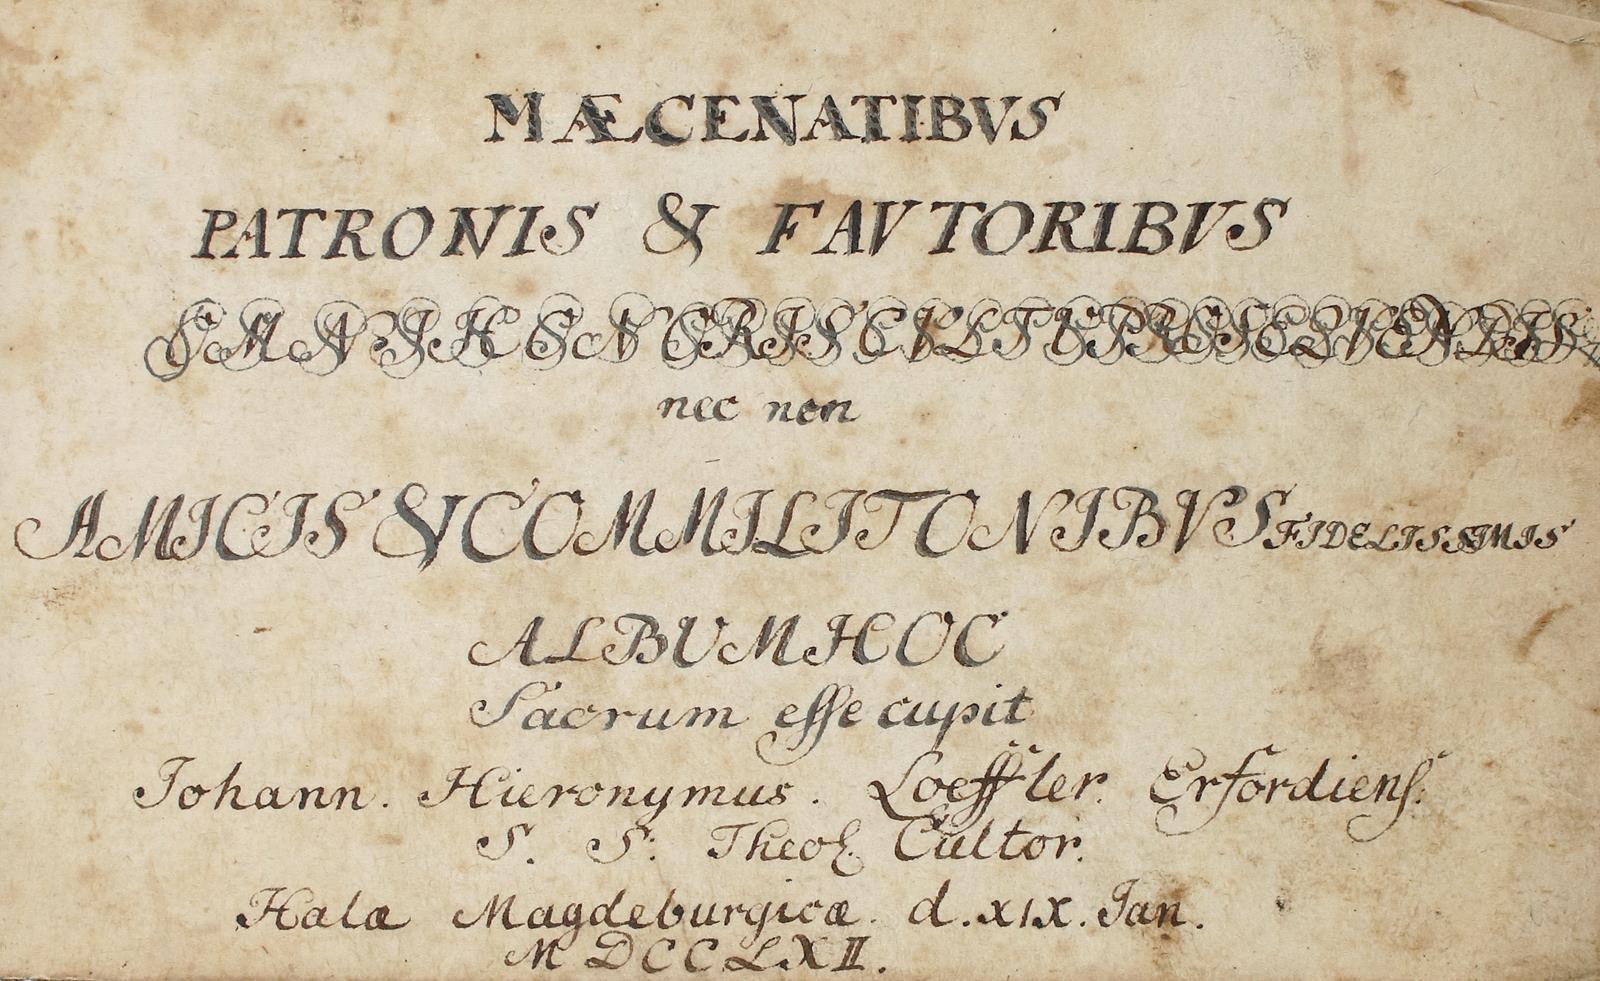 MÆCENATIBVS
PATRONIS & FAVTORIBVS
OMNI HONORIS CVLTV PROSEQVENDIS
nec non
AMICIS & COMMILITONIBVS FIDELISSIMIS
ALBUM HOC
Sacrum esse cupit
Johann. Hieronymus. Loeffler. Erfordiens.
S. S. Theol. Cultor.
Halæ Magdeburgicæ. d. XIX. Jan.
MDCCLXII.